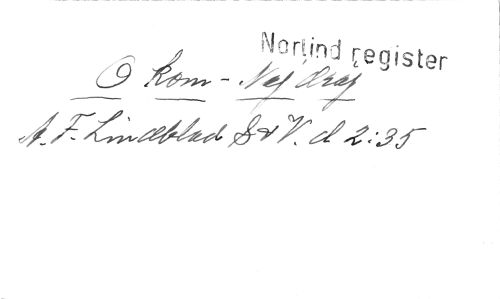 Norlind register
O kom - Nej drag
A. F. Lindblad S & V. d 2:35